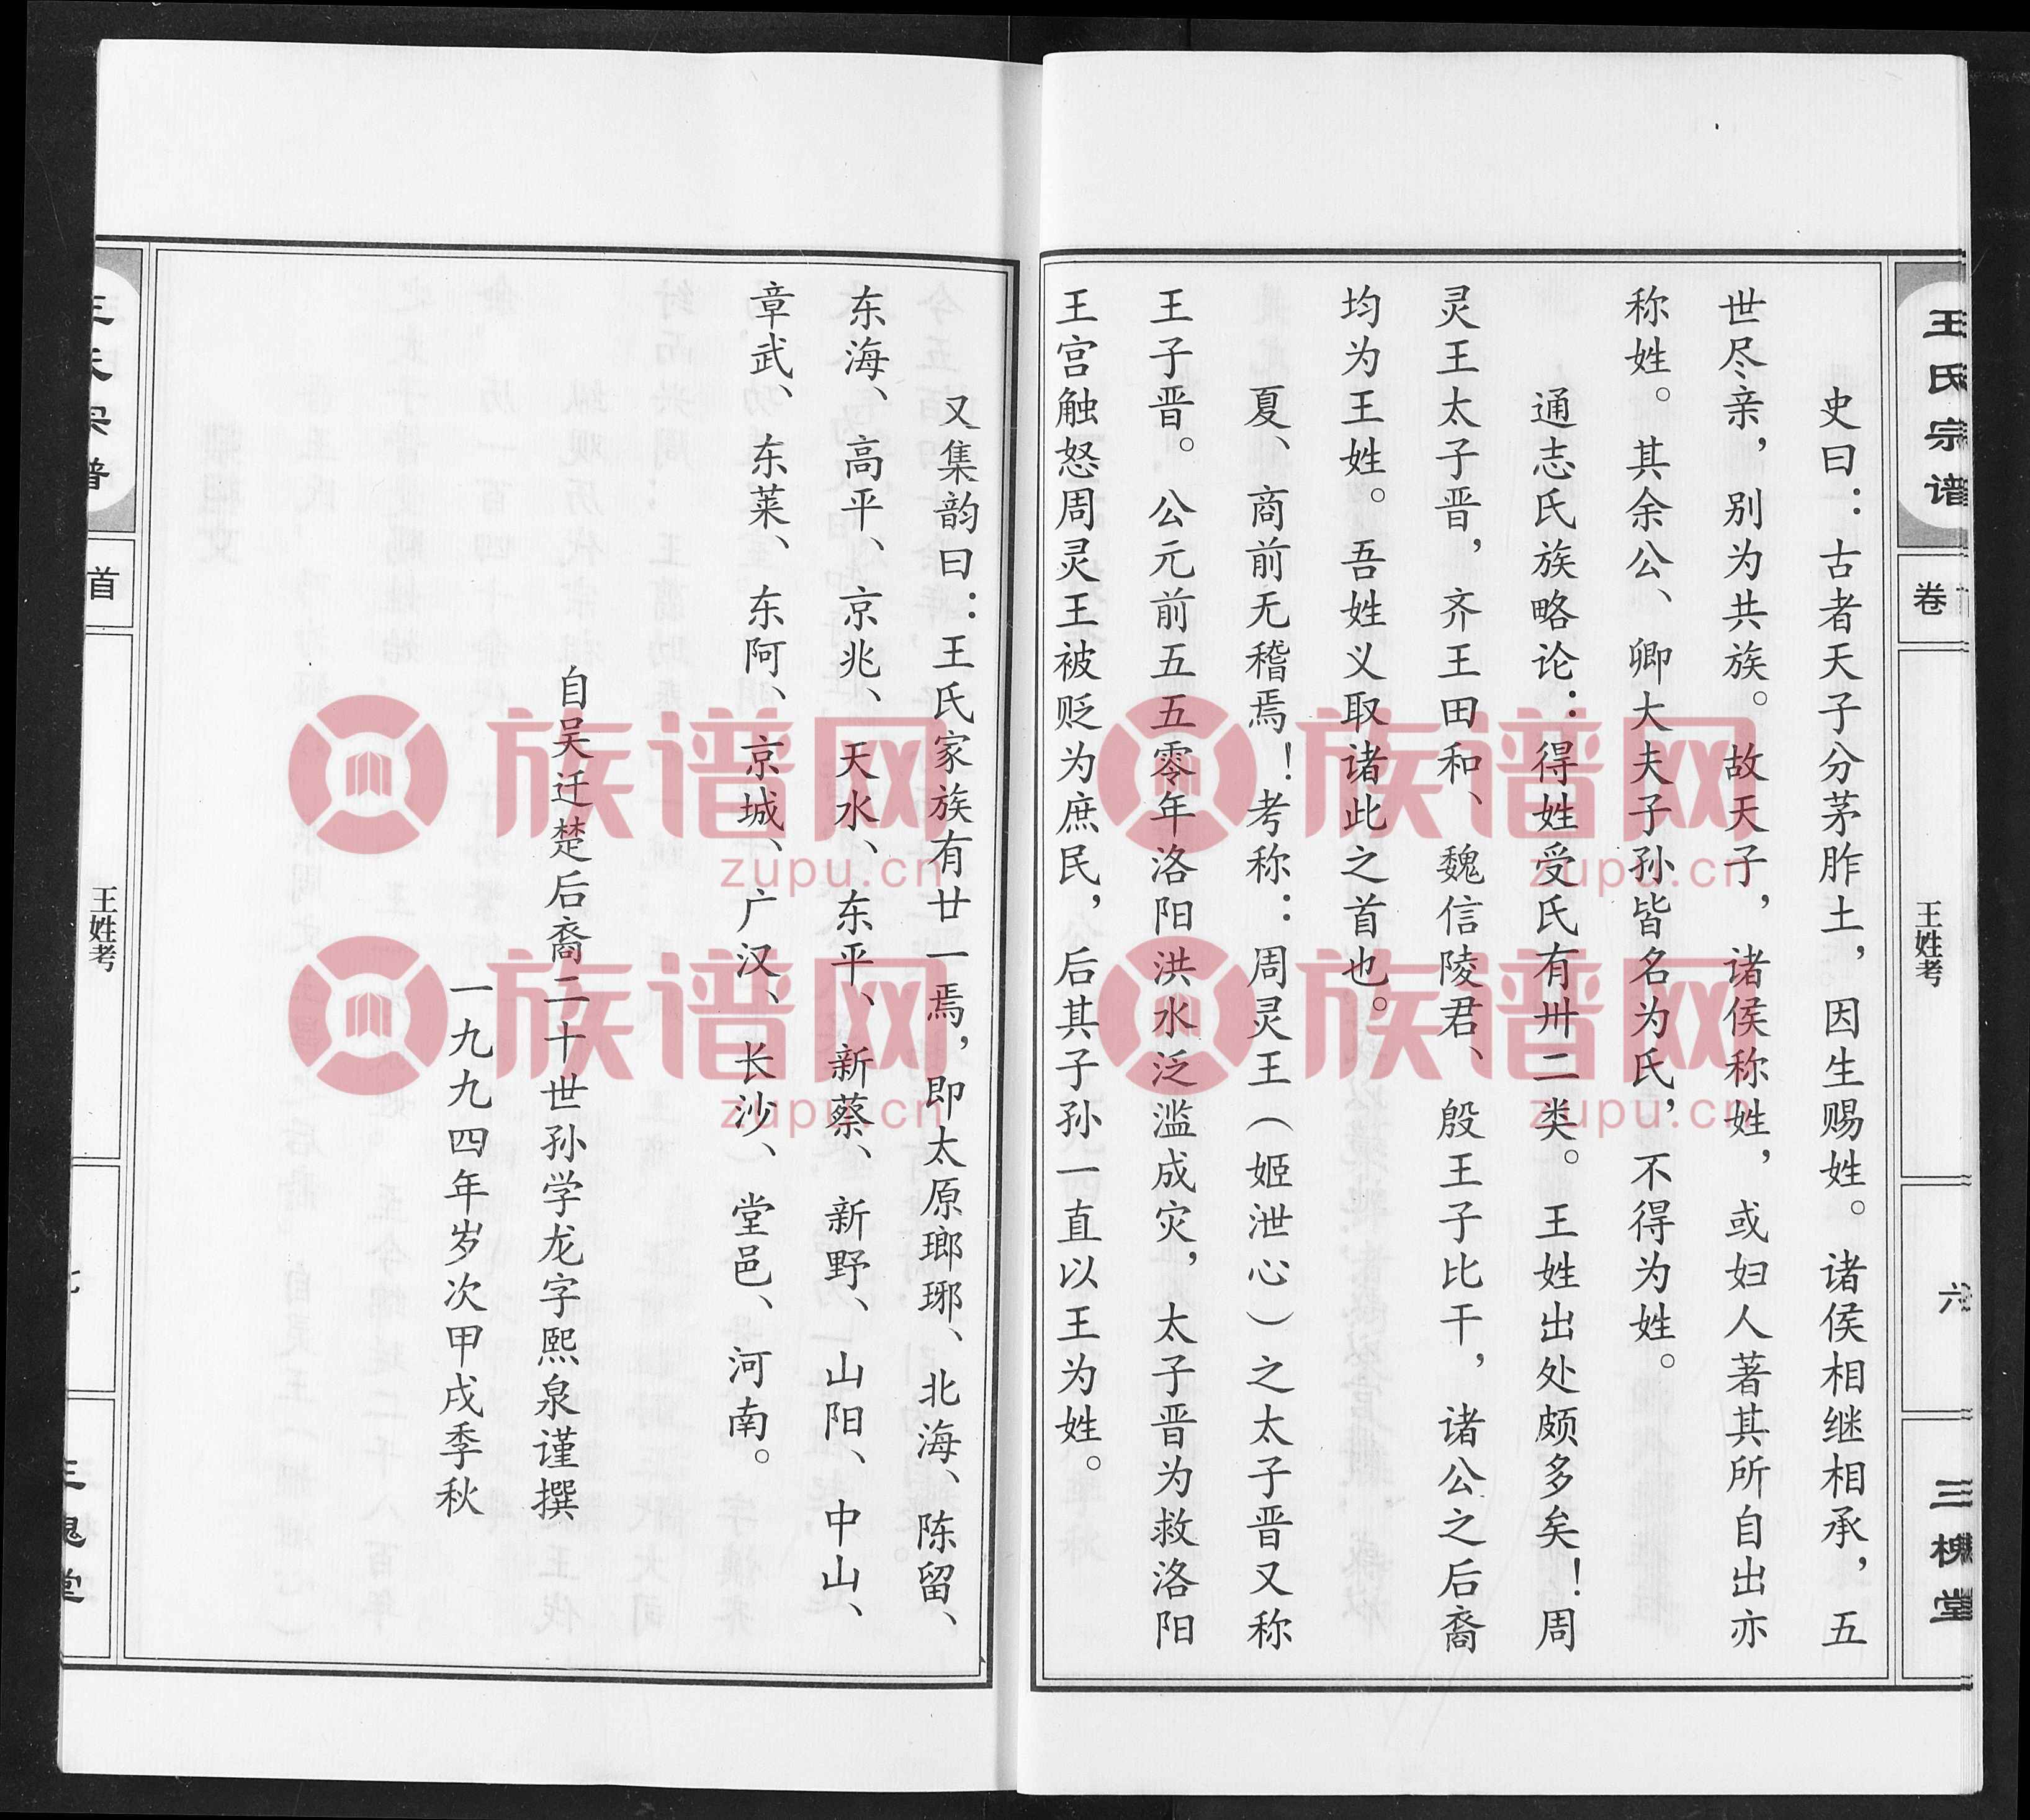 王氏宗谱
卷
王姓考
六
三槐堂
史曰：古者天子分茅胙土，因生赐姓。诸侯相继相承，五
世尽亲，别为共族。故天子，诸侯称姓，或妇人著其所自出亦
称姓。其余公、卿大夫子孙皆名为氏，不得为姓。
通志氏族略论：得姓受氏有卅二类。王姓出处颇多矣！周
灵王太子晋，齐王田和、魏信陵君、殷王子比干，诸公之后裔
均为王姓。吾姓义取诸此之首也。
夏、商前无稽焉！考称：周灵王（姬泄心）之太子晋又称
王子晋。公元前五五零年洛阳洪水泛滥成灾，太子晋为救洛阳
王宫触怒周灵王被贬为庶民，后其子孙一直以王为姓。
又集韵曰：王氏家族有廿一焉，即太原瑯琊、北海、陈留、
东海、高平、京兆、天水、东平、新蔡、新野、山阳、中山、
章武、东莱、东阿、京城、广汉、长沙、堂邑、河南。
自吴迁楚后裔二十世孙学龙字熙泉谨撰
一九九四年岁次甲戌季秋
王氏宗谱
首
王姓考
三槐堂
族谱网
zupu.cn
族谱网
zupu.cn
族谱网
zupu.cn
族谱网
zupu.cn